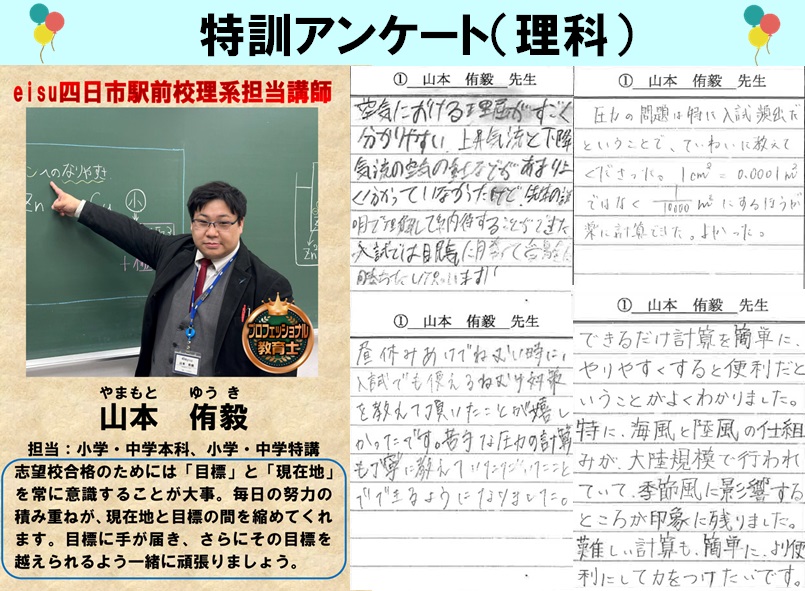 特訓アンケート(理科)
eisu四日市駅前校理系担当講師
ンへのなりやすさ
Zn
小
プロフェッショナル
教育士
やまもと ゆうき
山本 侑毅
担当:小学・中学本科、小学・中学特講
志望校合格のためには「目標」と「現在地」
を常に意識することが大事。毎日の努力の
積み重ねが、現在地と目標の間を縮めてくれ
ます。目標に手が届き、さらにその目標を
越えられるよう一緒に頑張りましょう。
① 山本 侑毅 先生
空気における理屈がすごく
分かりやすい、上昇気流と下降
気流の空気の動きなどがあまりよ
く分かっていなかったけど、先生の説
明で理解して納得することができた
入試では目標に向かって合格
勝ちたいと思います!
① 山本 侑毅 先生
圧力の問題は特に入試頻出だ
ということで、ていねいに教えて
くださった。1cm²=0.0001m²
ではなく 1/10000 m²にするほうが
楽に計算できた。よかった。
① 山本 侑毅 先生
昼休みあけでねむい時に、
入試でも使えるねむけ対策
を教えて頂いたことが嬉し
かったです。苦手な圧力の計算
も丁寧に教えていただいたこと
でできるようになりました。
① 山本 侑毅 先生
できるだけ計算を簡単に、
やりやすくすると便利だと
いうことがよくわかりました。
特に、海風と陸風の仕組
みが、大陸規模で行われ
ていて、季節風に影響する
ところが印象に残りました。
難しい計算も、簡単に、より便
利にして力をつけたいです。